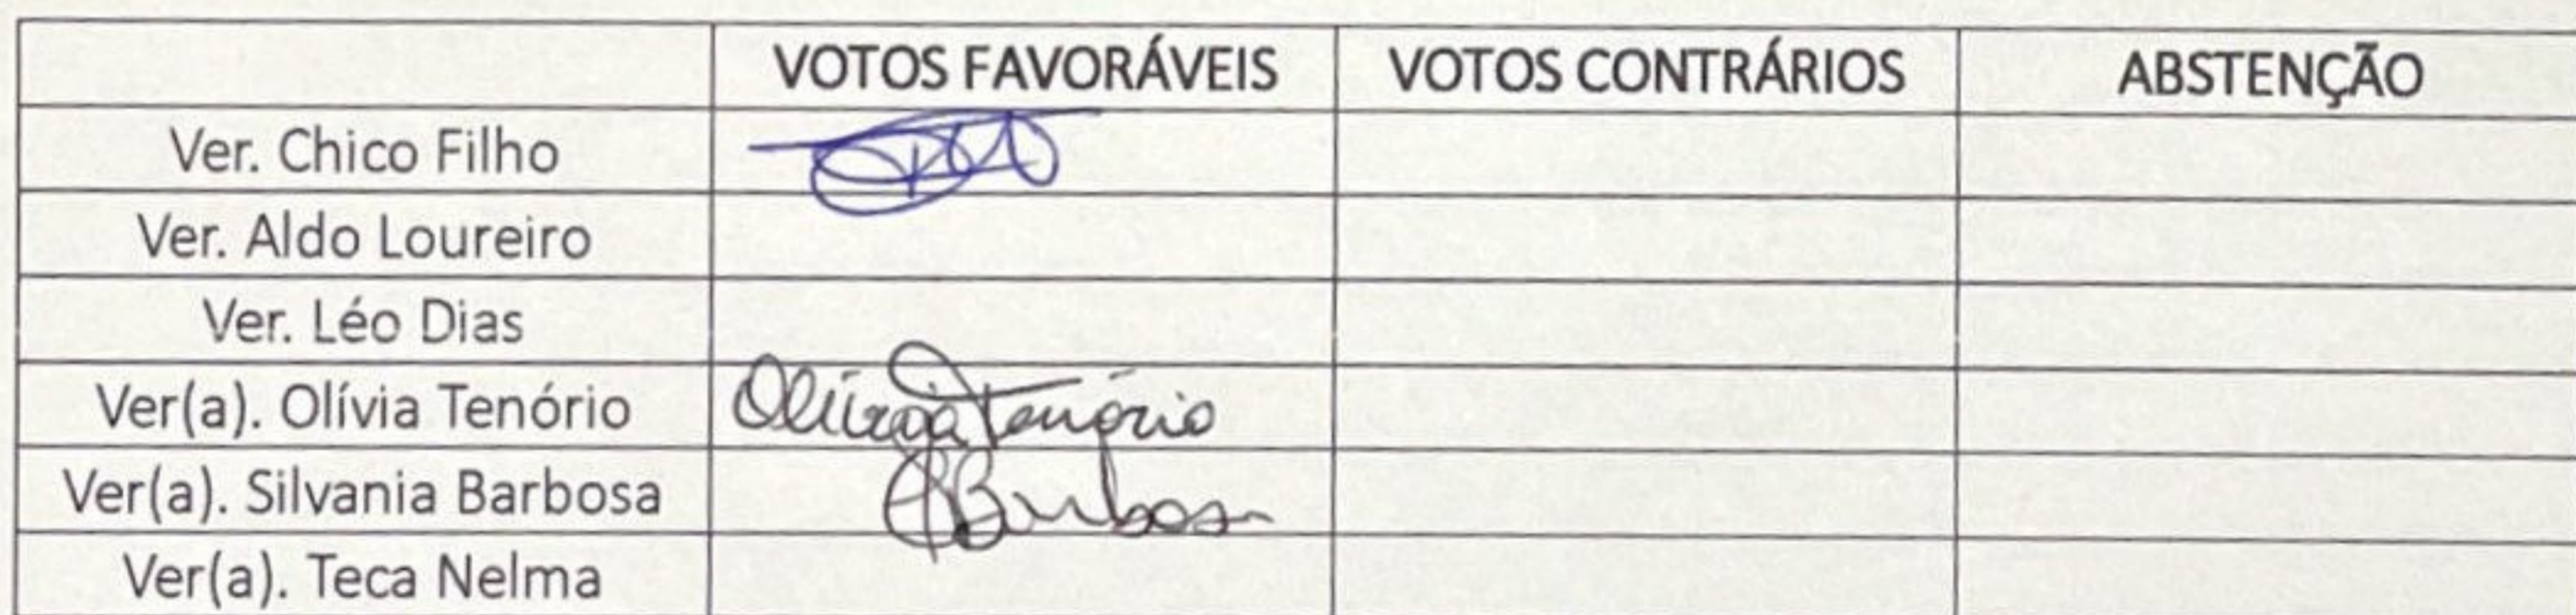 VOTOS FAVORÁVEIS VOTOS CONTRÁRIOS ABSTENÇÃO
Ver. Chico Filho
Ver. Aldo Loureiro
Ver. Léo Dias
Ver(a). Olívia Tenório Olívia Tenório
Ver(a). Silvania Barbosa SBarbosa
Ver(a). Teca Nelma